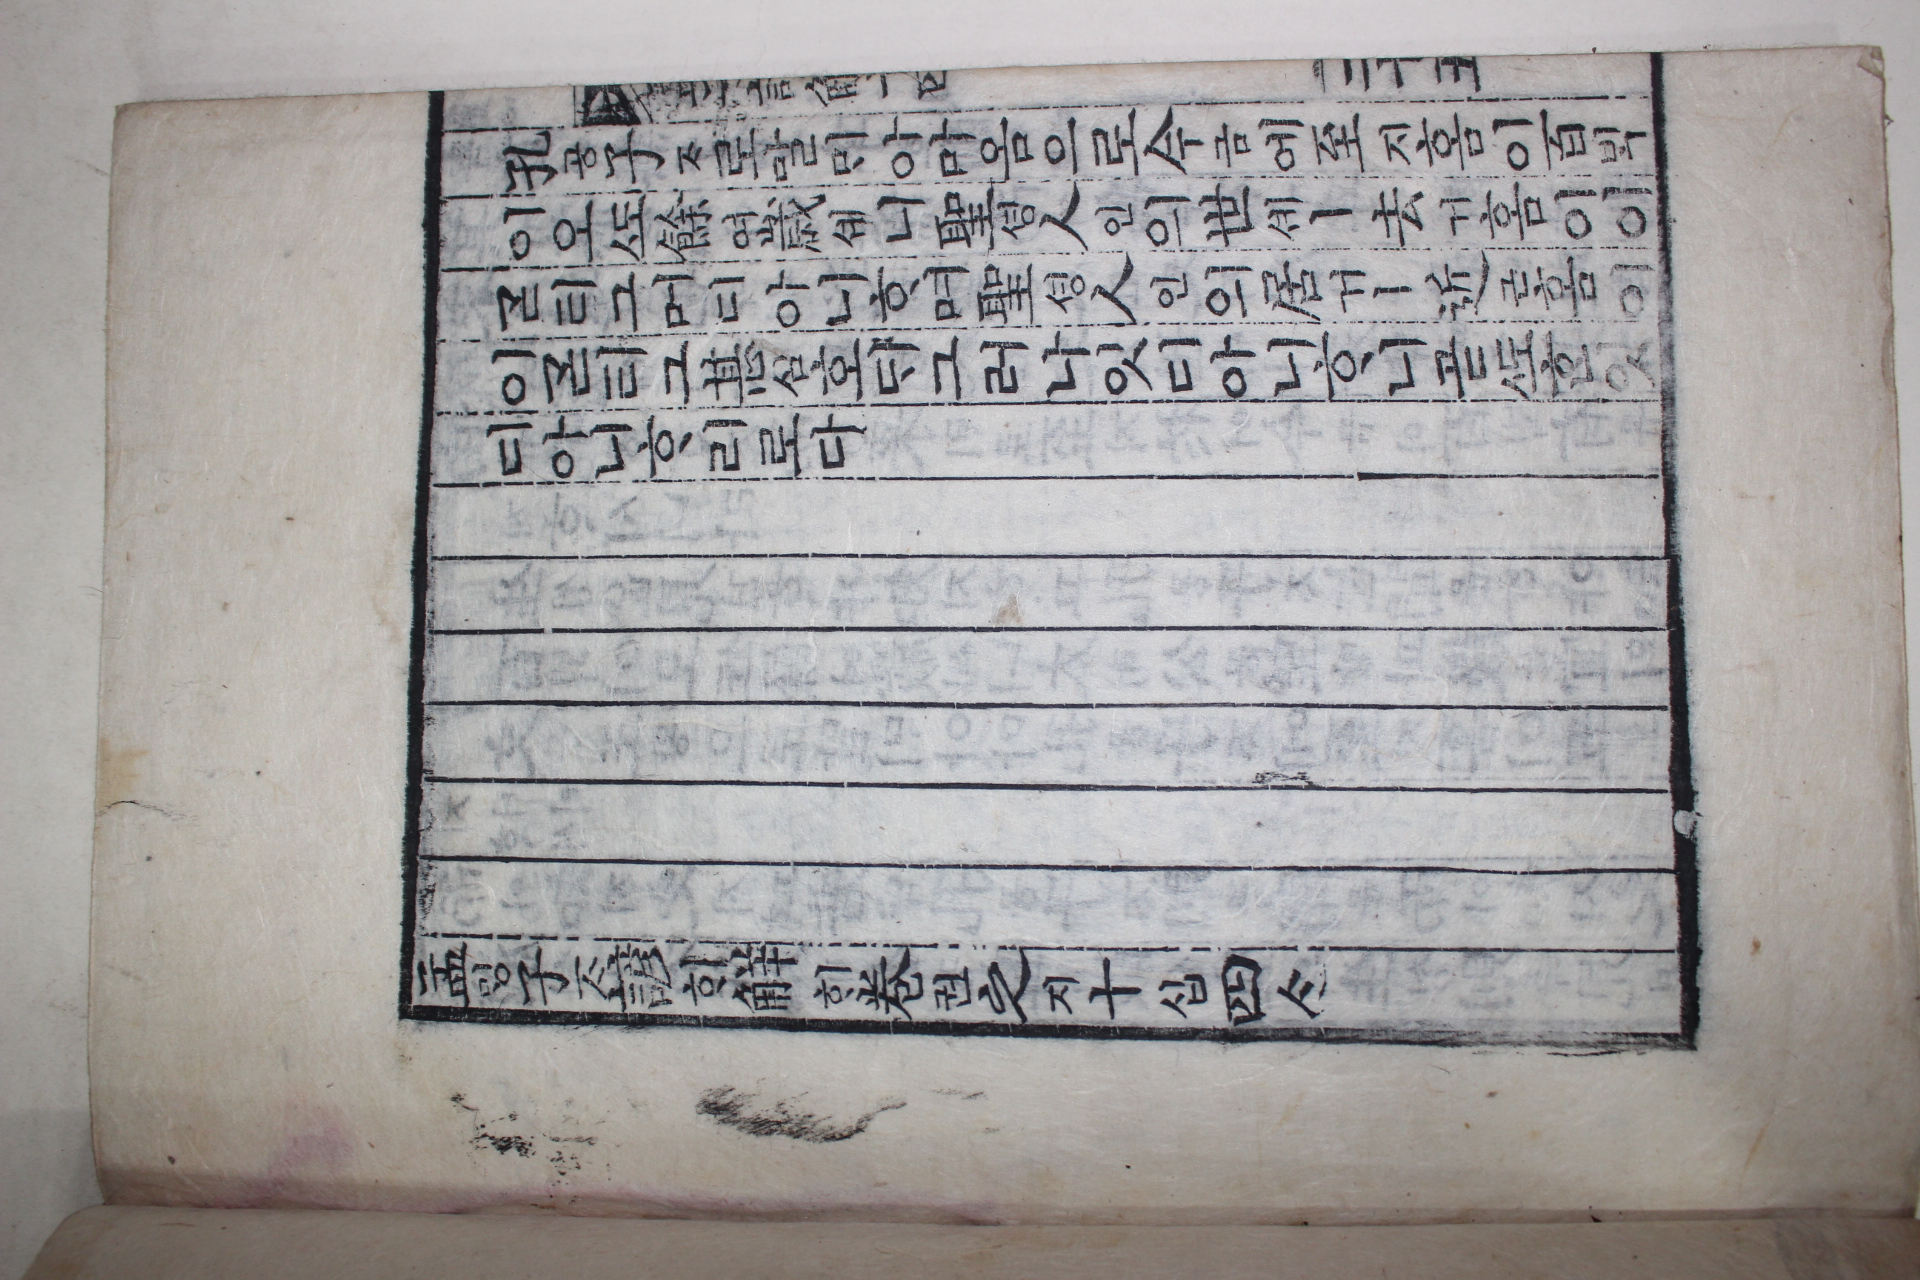 孔공子ᄌᆞ로말ᄆᆡ아마ᄋᆞᆷ으로今금에至지홈이百ᄇᆡᆨ
이오ᄯᅩ餘여歲셰니聖셩人인의世셰ㅣ去거홈이이
ᄀᆞᆮ티그머디아니ᄒᆞ며聖셩人인의居거ㅣ近근홈이
이ᄀᆞᆮ티그甚심호ᄃᆡ그러나잇디아니ᄒᆞ니곧ᄯᅩᄒᆞᆫ잇
디아니ᄒᆞ리로다
孟ᄆᆡᆼ子ᄌᆞ諺언解ᄒᆡ卷권之지十십四ᄉᆞ
二十五